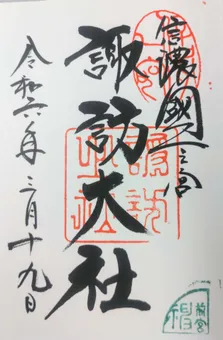 信濃國一之宮
諏訪大社
令和六年三月十九日
前宮